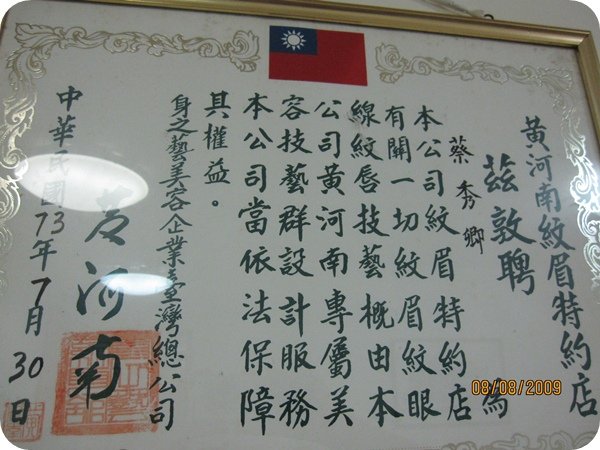 黄河南紋眉特約店
茲敦聘
蔡秀鄉
為
本公司紋眉特約店
有關一切紋眉紋眼
線紋唇技藝概由本
公司黄河南專屬美
容技藝群設計服務
本公司當依法保障
其權益。
身之藝美容企業臺灣總公司
黄河南
中華民國73年7月30日
08/08/2009